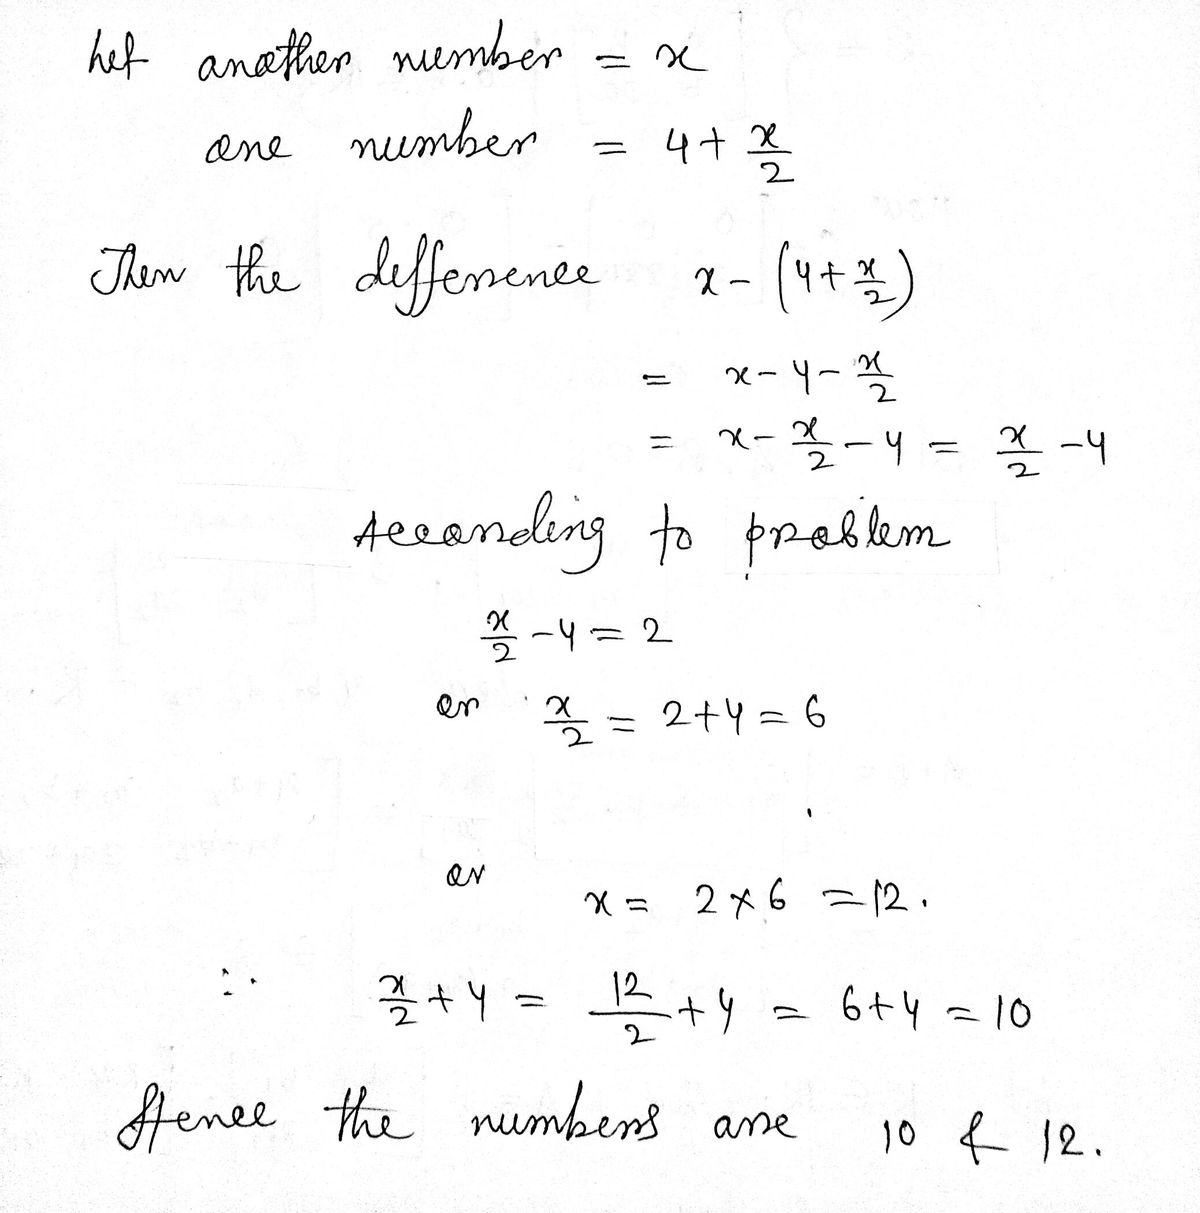 Let another number = x
one number = 4 + x/2
Then the difference x - (4 + x/2)
= x - 4 - x/2
= x - x/2 - 4 = x/2 - 4
According to problem
x/2 - 4 = 2
or x/2 = 2 + 4 = 6
or x = 2 × 6 = 12.
∴ x/2 + 4 = 12/2 + 4 = 6 + 4 = 10
Hence the numbers are 10 & 12.